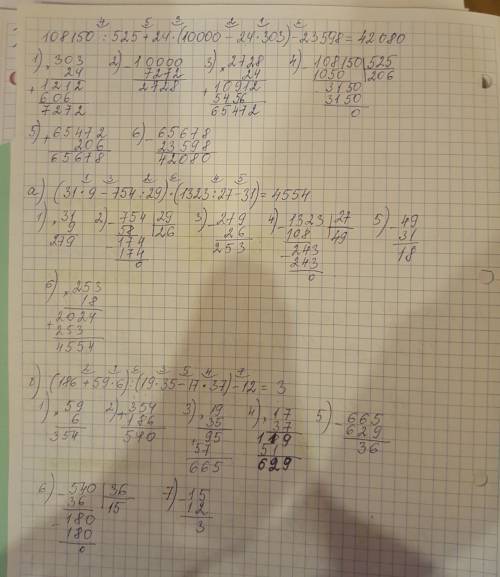 108150 : 525 + 24 · (10000 − 24 · 303) − 23598 = 42080
1) × 303 2) − 10000 3) × 2728 4) − 108150 | 525
24 7272 24 1050 206
+ 1212 2728 + 10912 − 3150
606 5456 3150
7272 65472 0
5) + 65472 6) − 65678
206 23598
65678 42080
а) (31 · 9 − 754 : 29) · (1323 : 27 − 31) = 4554
1) × 31 2) − 754 | 29 3) − 279 4) − 1323 | 27 5) − 49
9 58 26 26 108 49 31
279 174 253 − 243 18
174 243
0 0
6) × 253
18
+ 2024
253
4554
б) (186 + 59 · 6) : (19 · 35 − 17 · 37) − 12 = 3
1) × 59 2) + 354 3) × 19 4) × 17 5) − 665
6 186 35 37 629
354 540 + 95 119 36
57 51
665 629
6) − 540 | 36 7) − 15
36 15 12
− 180 3
180
0